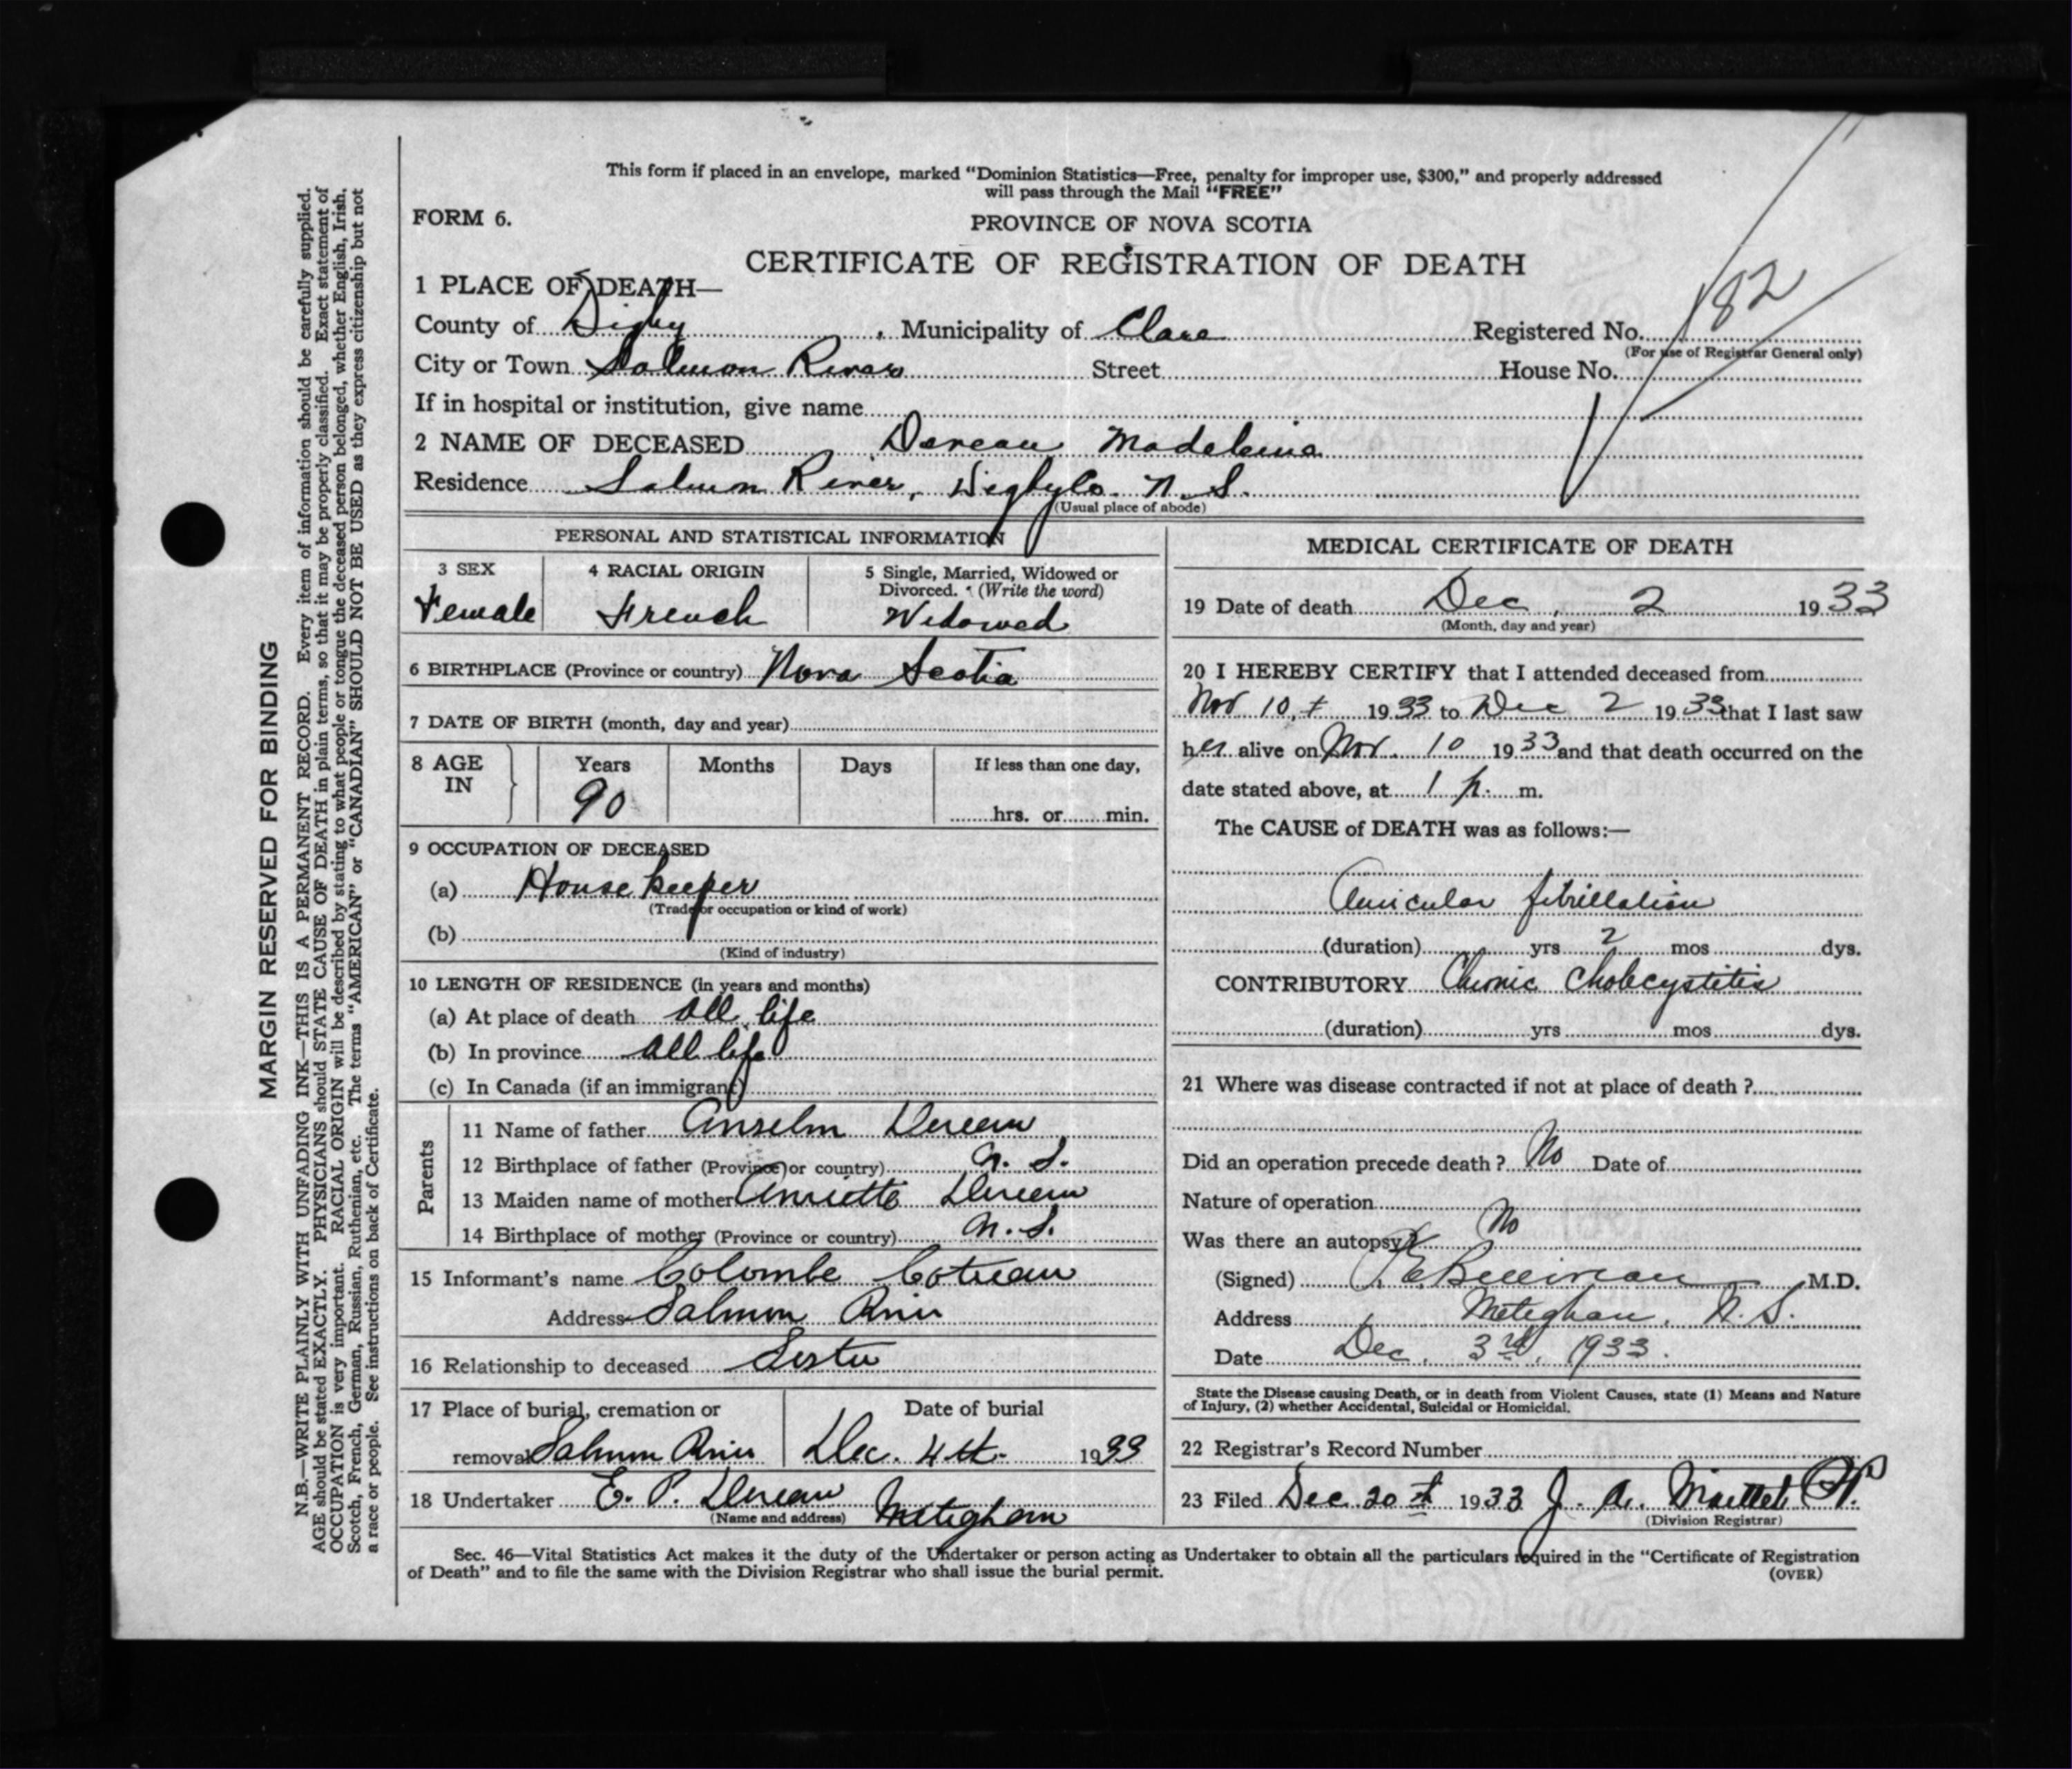 This form if placed in an envelope, marked “Dominion Statistics—Free, penalty for improper use, $300,” and properly addressed
will pass through the Mail “FREE”
FORM 6.
PROVINCE OF NOVA SCOTIA
CERTIFICATE OF REGISTRATION OF DEATH
1 PLACE OF DEATH—
County of Digby, Municipality of Clare Registered No. 182
(For use of Registrar General only)
City or Town Salmon River Street House No.
If in hospital or institution, give name
2 NAME OF DECEASED Madeleine
Residence Salmon River, Digby Co. N. S.
(Usual place of abode)
PERSONAL AND STATISTICAL INFORMATION
3 SEX Female
4 RACIAL ORIGIN French
5 Single, Married, Widowed or
Divorced. (Write the word)
Widowed
6 BIRTHPLACE (Province or country) Nova Scotia
7 DATE OF BIRTH (month, day and year)
8 AGE IN Years 90 Months Days If less than one day,
hrs. or min.
9 OCCUPATION OF DECEASED
(a) House keeper
(Trade or occupation or kind of work)
(b)
(Kind of industry)
10 LENGTH OF RESIDENCE (in years and months)
(a) At place of death all life
(b) In province all life
(c) In Canada (if an immigrant)
Parents
11 Name of father Anselm
12 Birthplace of father (Province or country) N. S.
13 Maiden name of mother
14 Birthplace of mother (Province or country) N. S.
15 Informant’s name Colombe
Address Salmon River
16 Relationship to deceased Sister
17 Place of burial, cremation or
removal Salmon River
Date of burial
Dec. 4th 1933
18 Undertaker E. P. Meteghan
(Name and address)
MEDICAL CERTIFICATE OF DEATH
19 Date of death Dec. 2 1933
(Month, day and year)
20 I HEREBY CERTIFY that I attended deceased from
Nov 10, 1933 to Dec 2 1933 that I last saw
her alive on Nov. 10 1933 and that death occurred on the
date stated above, at 1 p. m.
The CAUSE of DEATH was as follows:—
Auricular fibrillation
(duration) yrs 2 mos dys.
CONTRIBUTORY Chronic Cholecystitis
(duration) yrs mos dys.
21 Where was disease contracted if not at place of death ?
Did an operation precede death ? No Date of
Nature of operation
Was there an autopsy? No
(Signed) M.D.
Address Meteghan, N. S.
Date Dec. 3rd, 1933.
State the Disease causing Death, or in death from Violent Causes, state (1) Means and Nature
of Injury, (2) whether Accidental, Suicidal or Homicidal.
22 Registrar’s Record Number
23 Filed Dec 20th 1933 J. A.
(Division Registrar)
Sec. 46—Vital Statistics Act makes it the duty of the Undertaker or person acting as Undertaker to obtain all the particulars required in the “Certificate of Registration
of Death” and to file the same with the Division Registrar who shall issue the burial permit.
(OVER)
MARGIN RESERVED FOR BINDING
N.B.—WRITE PLAINLY WITH UNFADING INK—THIS IS A PERMANENT RECORD. Every item of information should be carefully supplied.
AGE should be stated EXACTLY. PHYSICIANS should STATE CAUSE OF DEATH in plain terms, so that it may be properly classified. Exact statement of
OCCUPATION is very important. RACIAL ORIGIN will be described by stating to what people or tongue the deceased person belonged, whether English, Irish,
Scotch, French, German, Russian, Ruthenian, etc. The terms “AMERICAN” or “CANADIAN” SHOULD NOT BE USED as they express citizenship but not
a race or people. See instructions on back of Certificate.